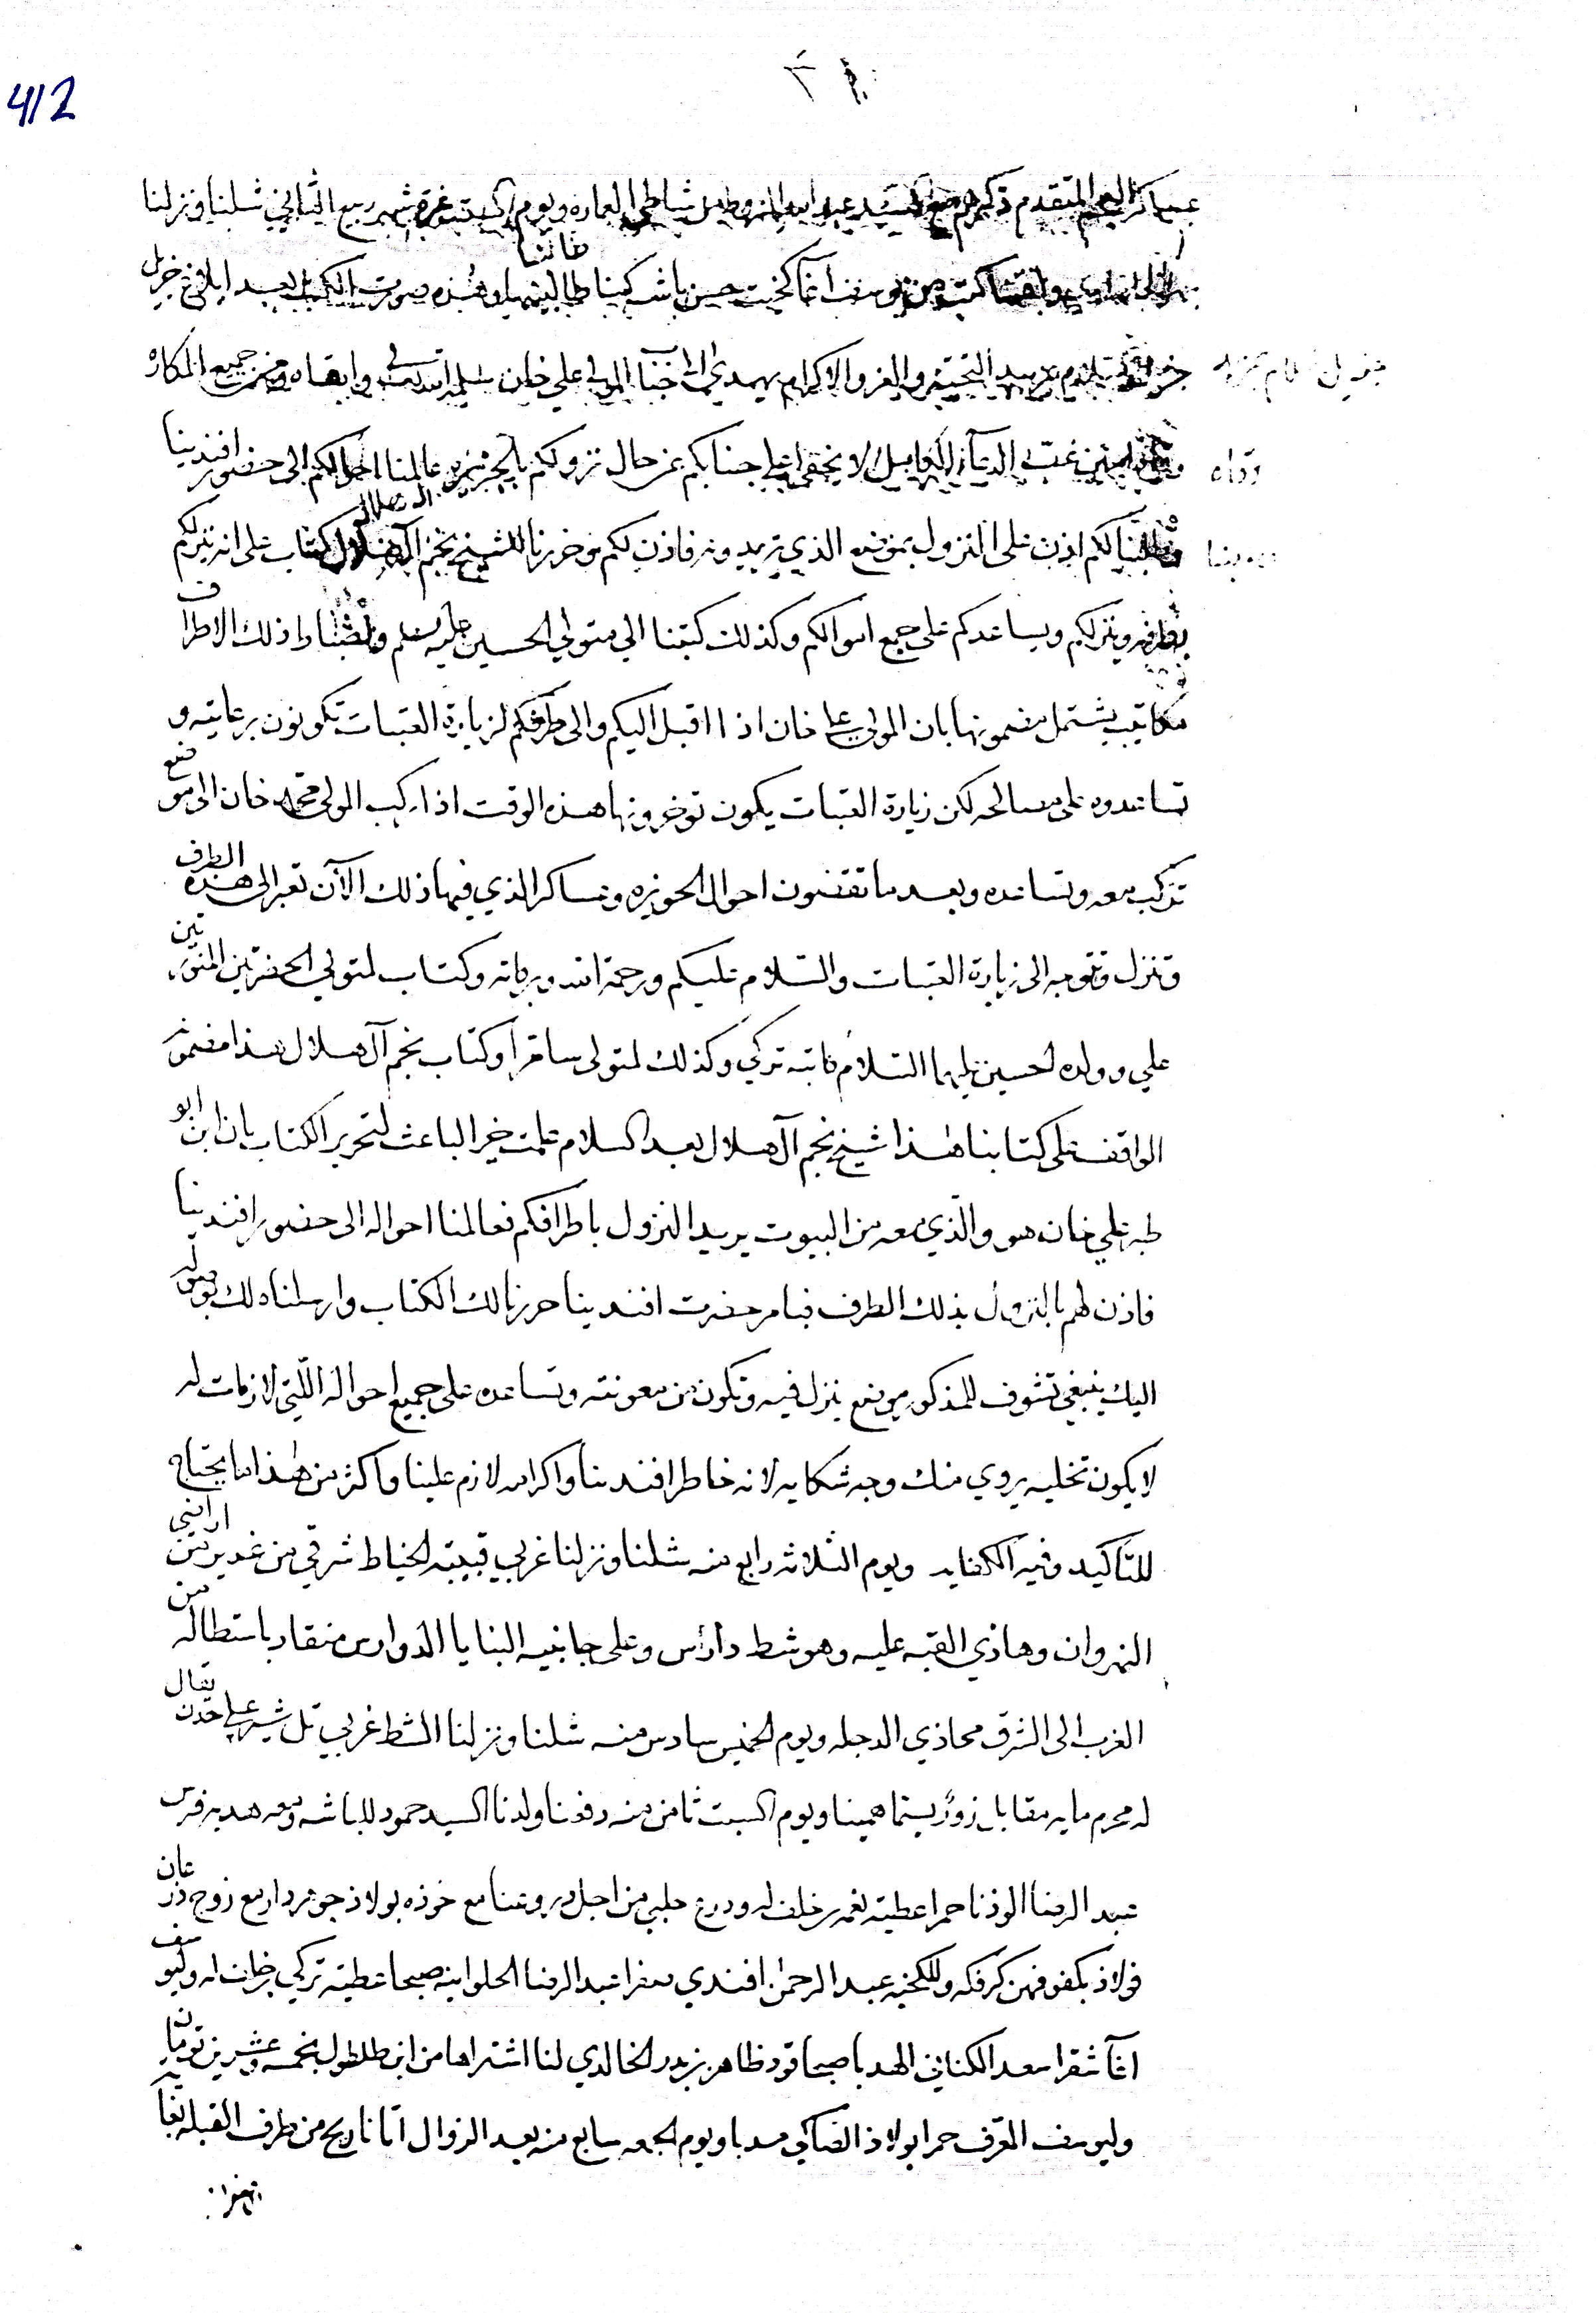 412
عساكر العجم المتقدم ذكرهم مع السيد عبد الله شاطي العماره ويوم السبت غرة شهر ربيع الثاني شلنا ونزلنا
يوسف اغا كخيت حسن باشه كينا طالبينها وهذه صورت الكتاب بعد ابلاغ جزيل
مزيد التحية والعز والاكرام يهدي الى جناب المولى علي خان سلمه الله تعالى وابقاه ومن جميع المكاره
غب الدعاء لا يخفى على جنابكم عن حال نزولكم بالجزيره عالمنا احوالكم الى حضور افندينا
وطلبنا لكم اذن على النزول بموضع الذي تريدونه فاذن لكم وحررنا للشيخ نجم آل هلال كتاب على انه ينزلكم
بطرفه وينزلكم ويساعدكم على جمع اموالكم وكذلك كتبنا الى متولي الحسين عليه السلم ذلك الاطراف
مكاتيب يشتمل مضمونها بان المولى علي خان اذا اقبل اليكم والى طرفكم لزيارة العتبات تكونون برعايته و
تساعدوه على مصالحه لكن زيارة العتبات يكون توخرونها هذه الوقت اذا ركب المولى محمد خان الى موضع
تركب معه وتساعده وبعد ما تقضون احوال الحويزه وعساكر الذي فيها ذلك الآن تعبر الى هذه الطرف
وتنزل وتتوجه الى زيارة العتبات والسلام عليكم ورحمة الله وبركاته وكتاب لمتولي الحضرتين المنورتين
علي وولده الحسين عليهما السلام كاتبه تركي وكذلك لمتولى سامرا وكتاب نجم آل هلال هذا مضمونه
الواقف على كتابنا هذا شيخ نجم آل هلال بعد السلام علمت خير الباعث لتحرير الكتاب بان ابن ابو
طبه علي خان هو والذي معه من البيوت يريد النزول باطرافكم فعالمنا احواله الى حضور افندينا
فاذن لهم بالنزول بذلك الطرف فبامر حضرت افندينا حررنا لك الكتاب وارسلناه لك بوصوله
اليك ينبغي تشوف للمذكور موضع ينزل فيه وتكون من معونته وتساعده على جميع احواله اللتي لازمات له
لا يكون تخليه يروي منك وجه شكايه لانه خاطر افندينا واكرامه لازم علينا واكثر من هذا ما يحتاج
للتاكيد وفيه الكفايه ويوم الثلاثه رابع منه شلنا ونزلنا غربي قبيبة الخياط شرقي من غدير من اراضي
النهروان وهاذي القبه عليه وهو شط دارس وعلى جانبيه البنايا الدوارس منقاد باستطاله من
الغرب الى الشرق محاذي الدجله ويوم الخميس سادس منه شلنا ونزلنا الشط غربي تل شير علي حدن يقال
له محرم مايه مقابل همينا ويوم السبت ثامن منه دفعنا ولدنا السيد حمود للباشه ومعه هديه فرس
عبد الرضا الوذنا حمرا عطية نعمه بن خلف له ودرع حلبي من اجل دروعنا مع خوذه بولاذ جوهردار مع زوج ذرعان
فولاذ وللكخيه عبد الرحمن افندي صفرا عبد الرضا الحلوا بنه صبحا عطية تركي بن خلف له وليوسف
اغا شقرا سعد الكناني الهدبا صبحا قود ظاهر بن بدر الخالدي لنا اشتراها من ابن طلطول بخمسه وعشرين تومان
وليوسف المعرف حمرا بولاذ مدبا ويوم الجمعه سابع منه بعد الزوال اتانا ريح من طرف القبله